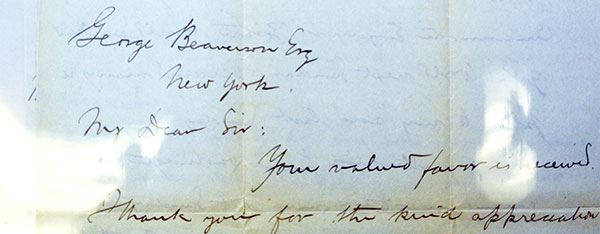 George Beaverson Esq
New York.
My Dear Sir:
Your valued favor is received.
Thank you for the kind appreciation